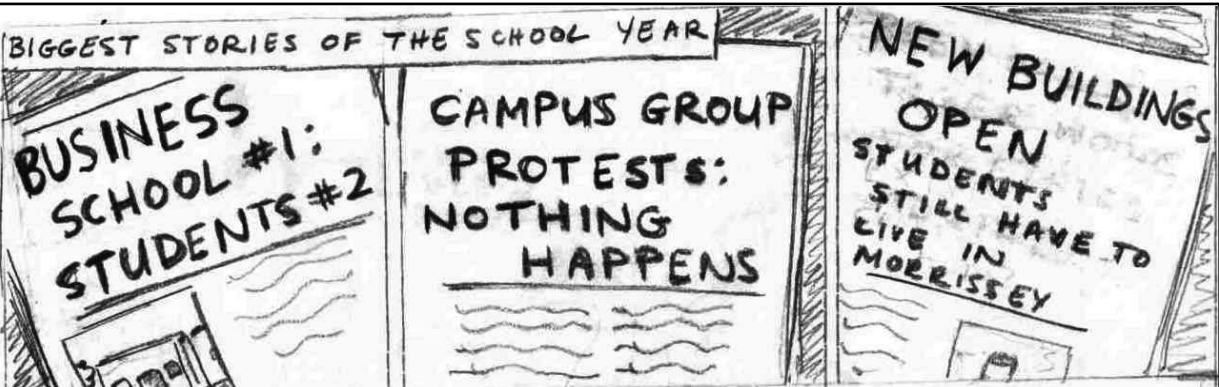 BIGGEST STORIES OF THE SCHOOL YEAR
BUSINESS
SCHOOL #1:
STUDENTS #2
CAMPUS GROUP
PROTESTS:
NOTHING
HAPPENS
NEW BUILDINGS
OPEN
STUDENTS
STILL HAVE TO
LIVE IN
MORRISSEY